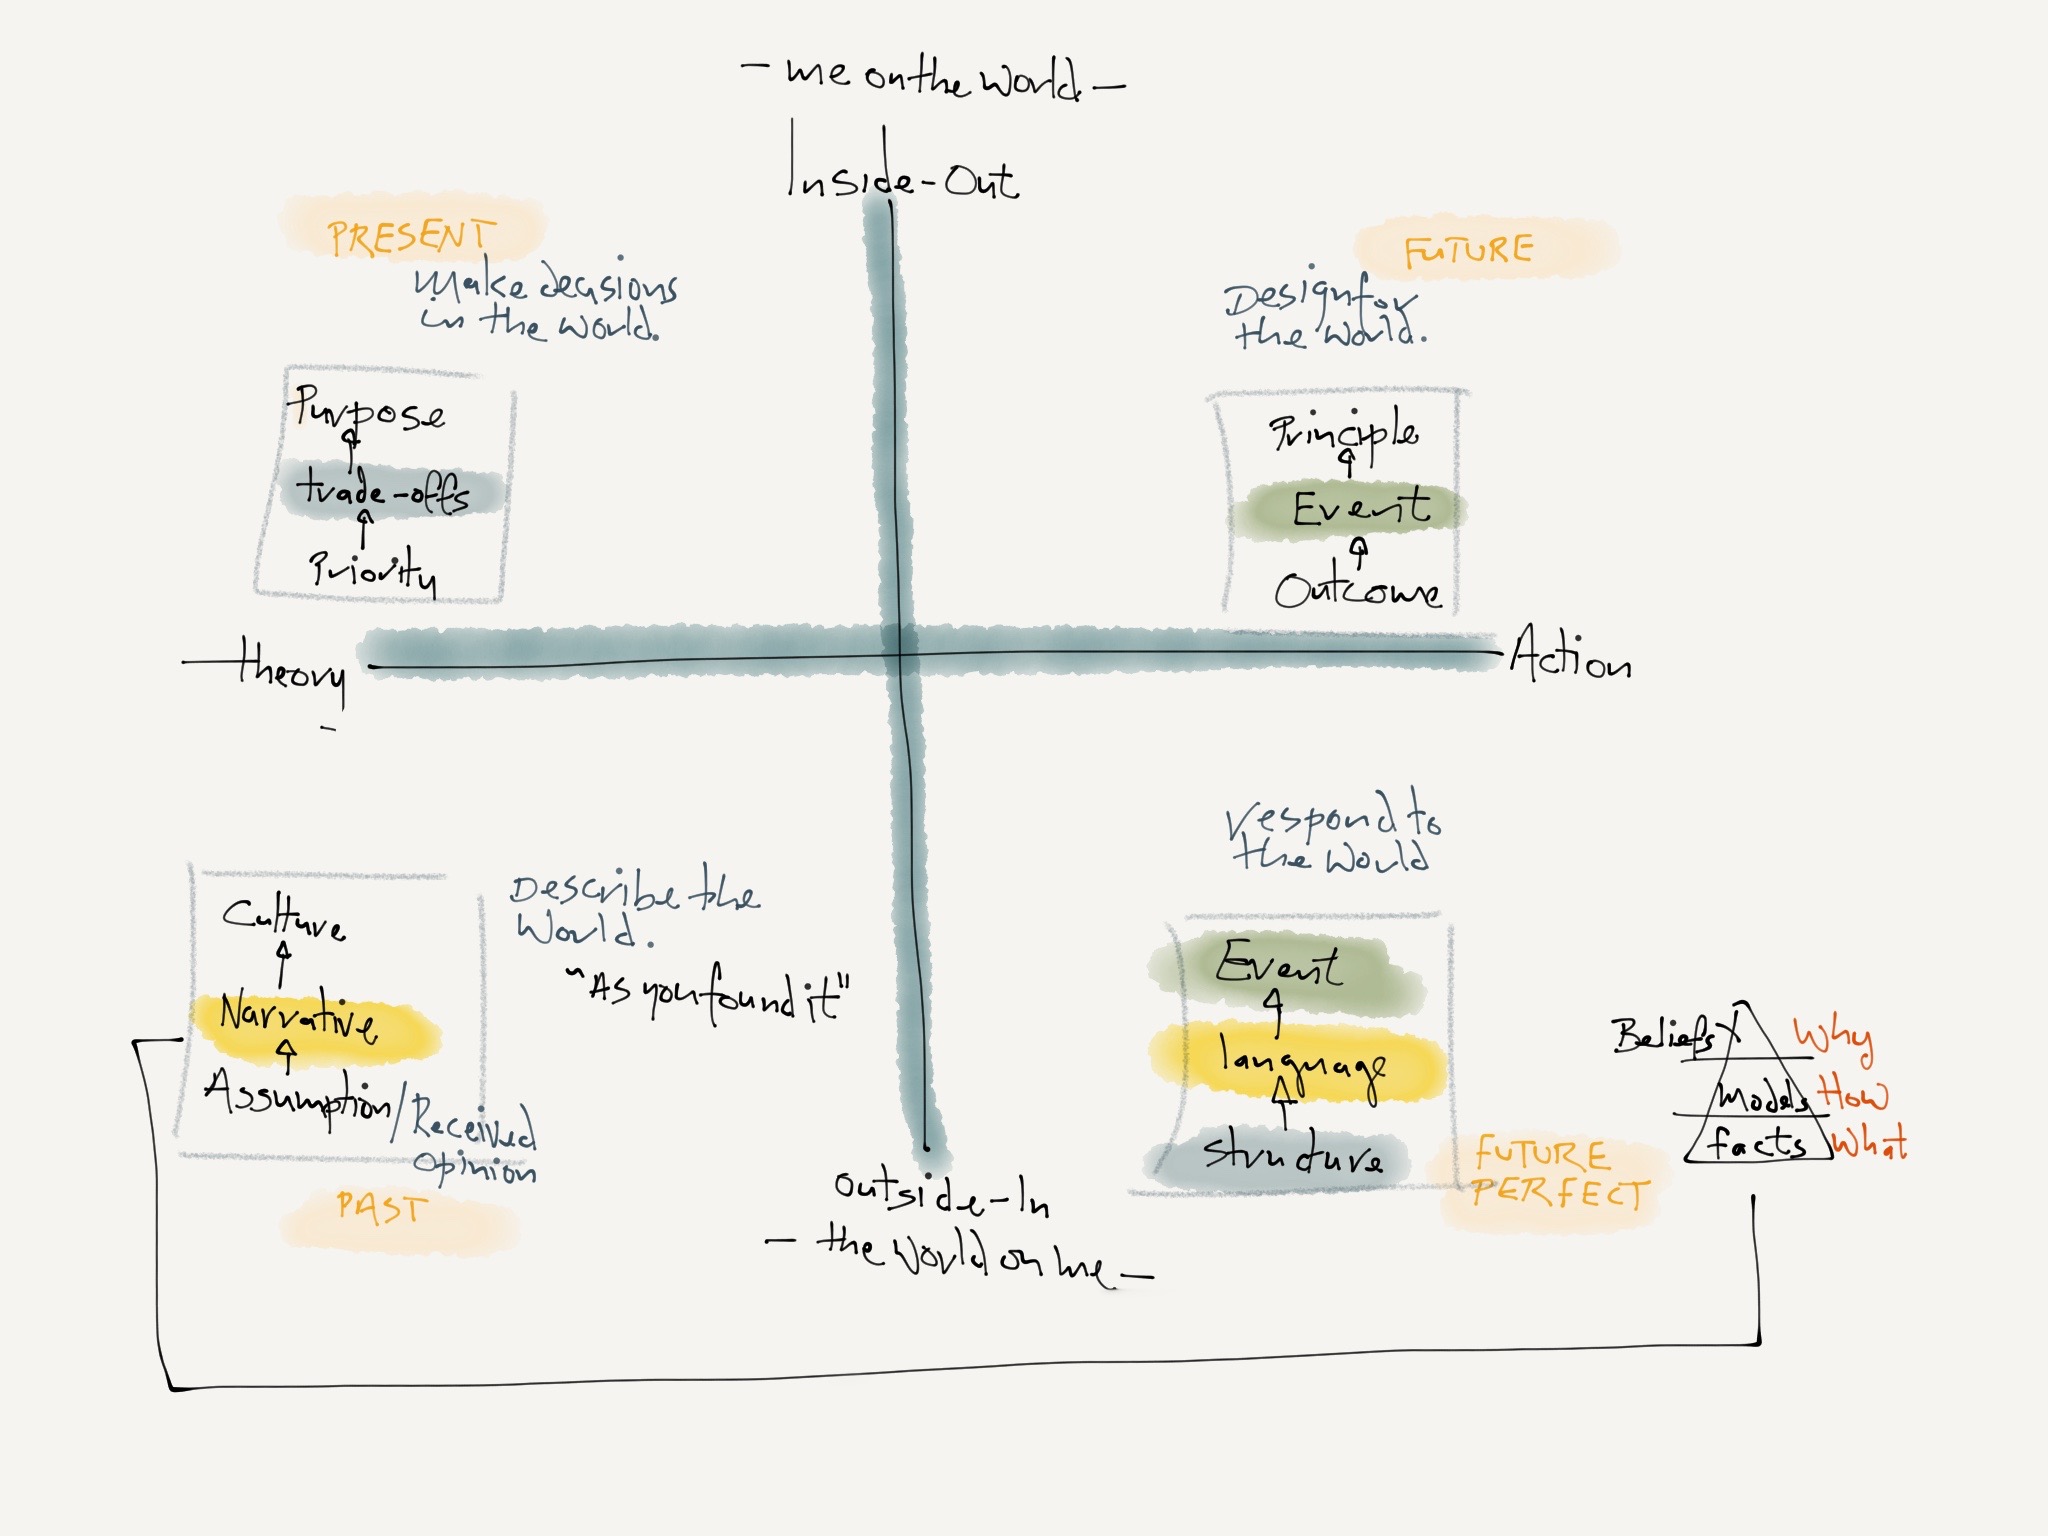 - me on the world -
Inside-Out
PRESENT
Make decisions
in the world.
Purpose
trade-offs
Priority
FUTURE
Design for
the world.
Principle
Event
Outcome
theory
Action
Culture
Narrative
Assumption/Received
opinion
PAST
Describe the
World.
"As you found it"
respond to
the world
Event
language
structure
FUTURE
PERFECT
Beliefs Why
Models How
facts What
outside-In
- the world on me -